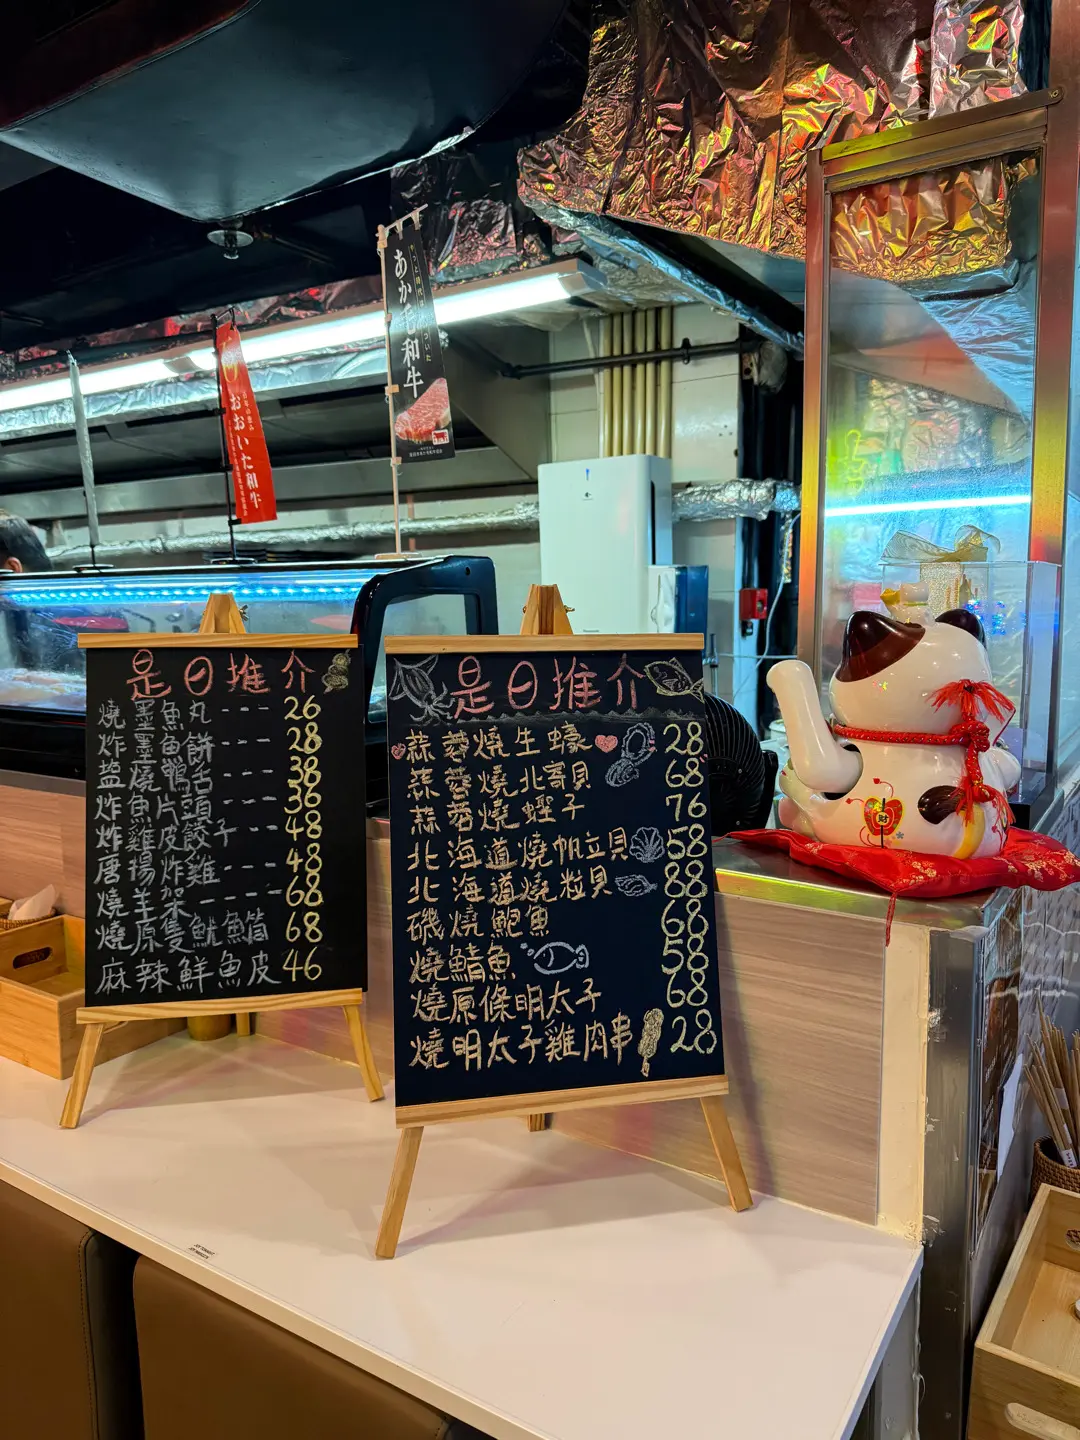 あか毛和牛
おおいた和牛
是日推介
燒墨魚丸--- 26
炸墨魚餅--- 28
塩燒鴨舌--- 38
炸魚片頭--- 36
炸雞皮餃子-- 48
唐揚炸雞--- 48
燒羊架---- 68
燒原隻魷魚筒 68
麻辣鮮魚皮 46
是日推介
蒜蓉燒生蠔 28
蒜蓉燒北寄貝 68
蒜蓉燒蟶子 76
北海道燒帆立貝 58
北海道燒粒貝 88
磯燒鮑魚 68
燒鯖魚 58
燒原條明太子 68
燒明太子雞肉串 28
財